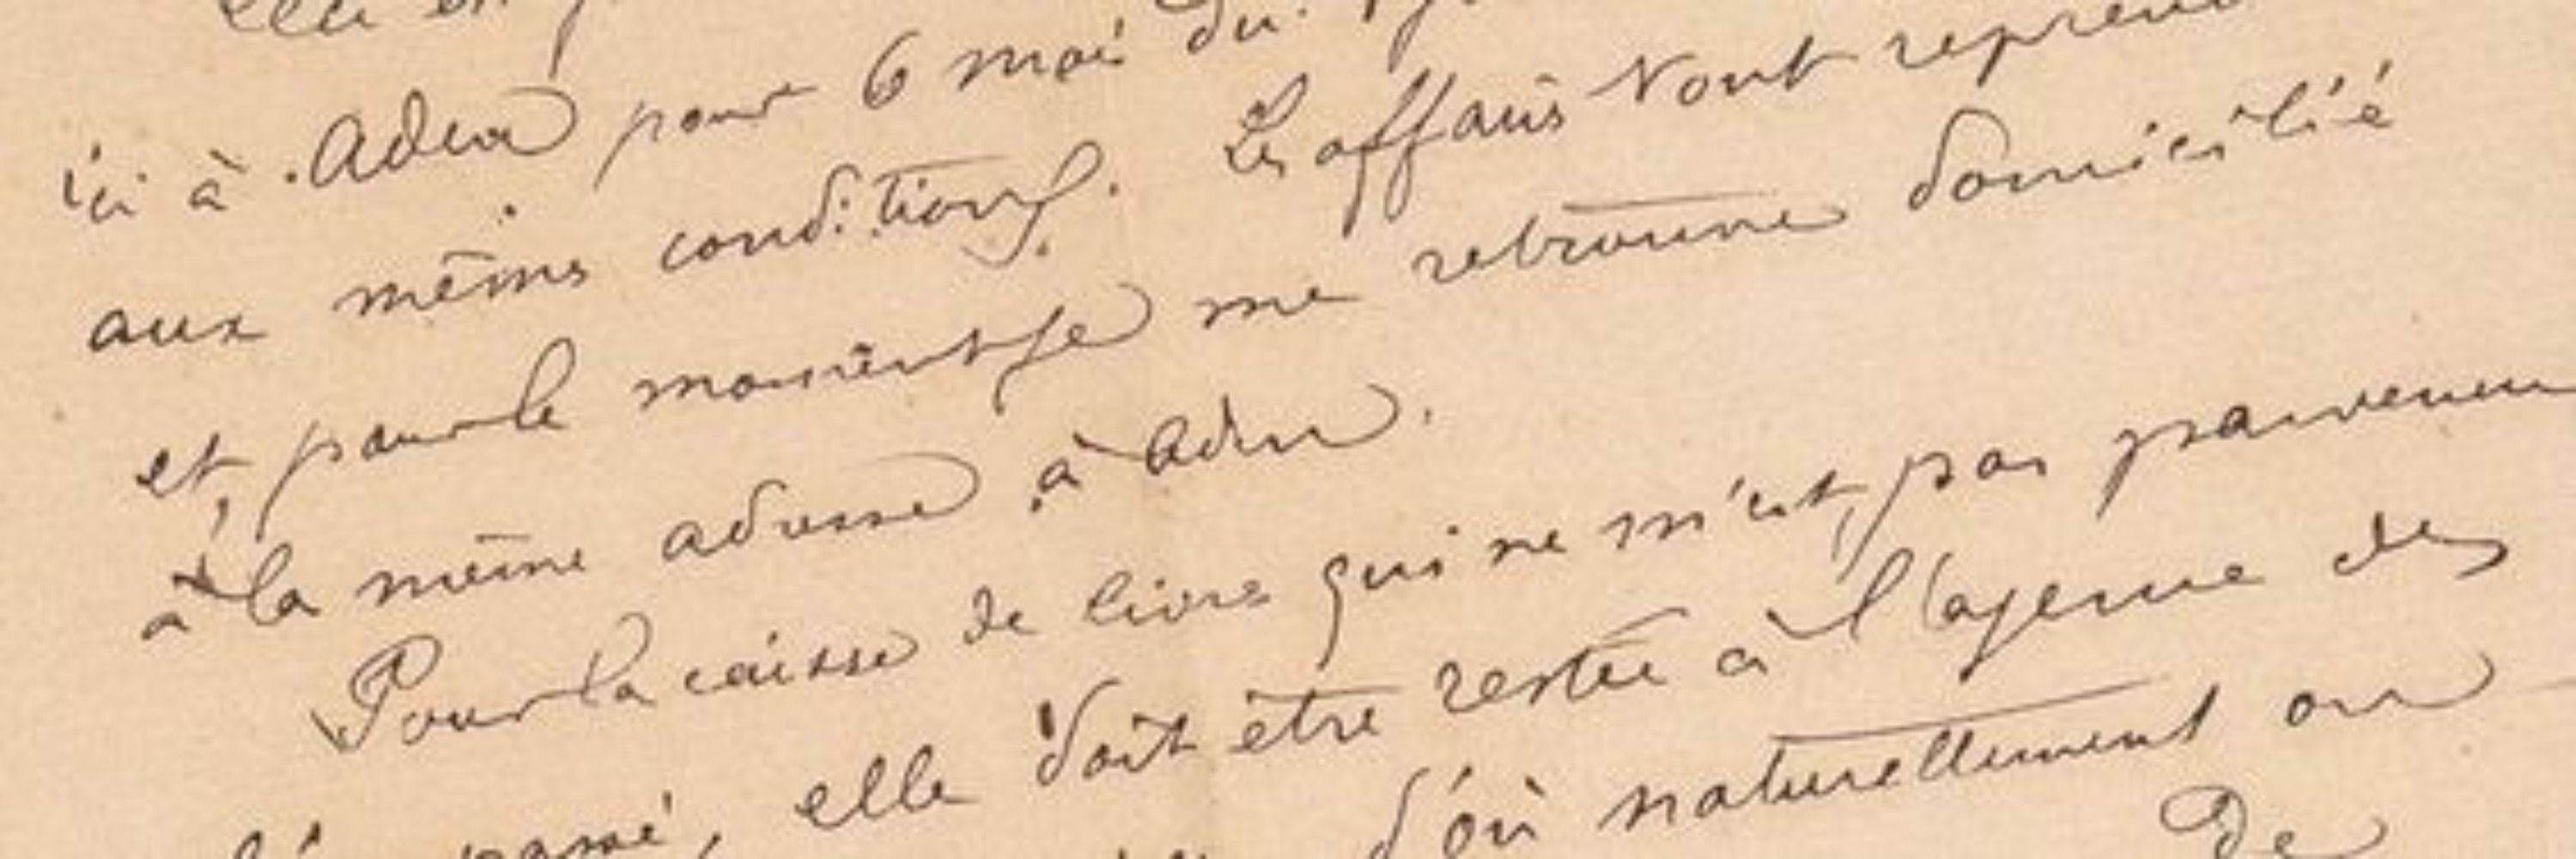 ici à Aden pour 6 mois du
aux mêmes conditions. Les affaires vont reprend
et, pour le moment je me retrouve domicilié
à la même adresse, à Aden.
Pour la caisse de livres qui ne m'est pas parvenue
passé, elle doit être restée à l'agence des
d'où naturellement on
De